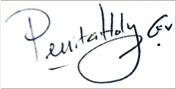 PenitaHoly Gv